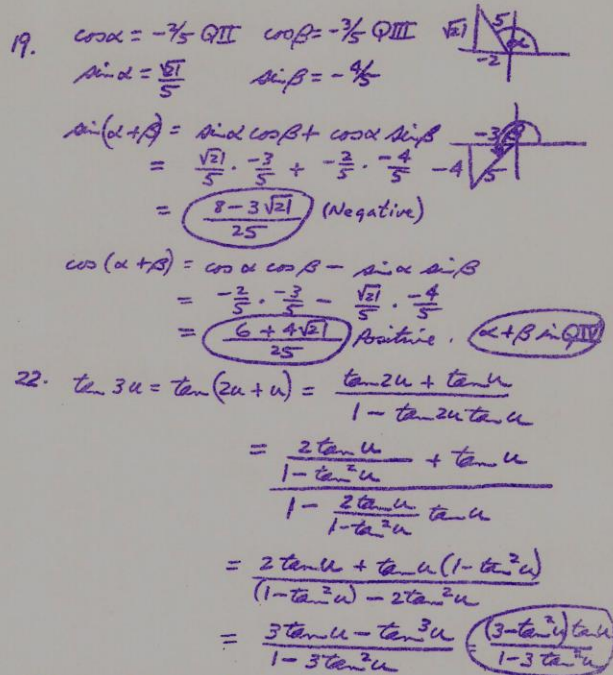 19. cosα = -2/5 QII cosβ = -3/5 QIII
sinα = √21/5 sinβ = -4/5
√21 5 α
-2
sin(α+β) = sinα cosβ + cosα sinβ
= √21/5 · -3/5 + -2/5 · -4/5
-3 β
-4 5
= (8-3√21)/25 (Negative)
cos(α+β) = cosα cosβ - sinα sinβ
= -2/5 · -3/5 - √21/5 · -4/5
= (6+4√21)/25 Positive. α+β in QIV
22. tan 3u = tan(2u+u) = (tan2u + tanu)/(1 - tan2u tanu)
= (2tanu/(1-tan²u) + tanu)/(1 - 2tanu/(1-tan²u) tanu)
= (2tanu + tanu(1-tan²u))/((1-tan²u) - 2tan²u)
= (3tanu - tan³u)/(1-3tan²u) = (3-tan²u)tanu/(1-3tan²u)